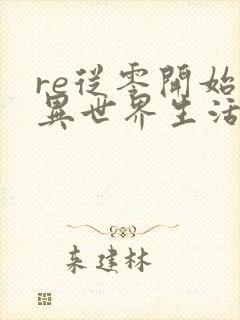 re從零開始
異世界生活
束建林